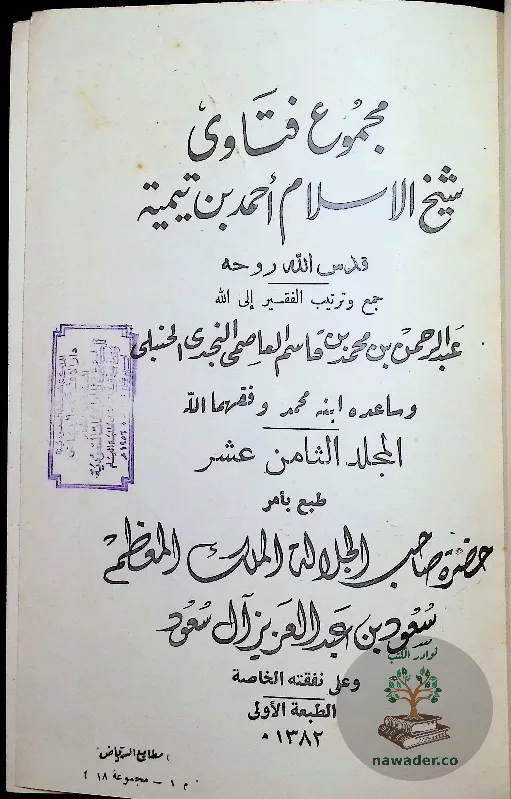 مجموع فتاوى
شيخ الاسلام أحمد بن تيمية
قدس الله روحه
جمع وترتيب الفقير إلى الله
عبد الرحمن بن محمد بن قاسم العاصمي النجدي الحنبلي
وساعده ابنه محمد وفقهما الله
المجلد الثامن عشر
طبع بأمر
حضرة صاحب الجلالة الملك المعظم
سعود بن عبد العزيز آل سعود
وعلى نفقته الخاصة
الطبعة الأولى
١٣٨٢ ه
مطابع الرياض
م ١ - مجموعة ١٨
نوادر الكتب
nawader.co